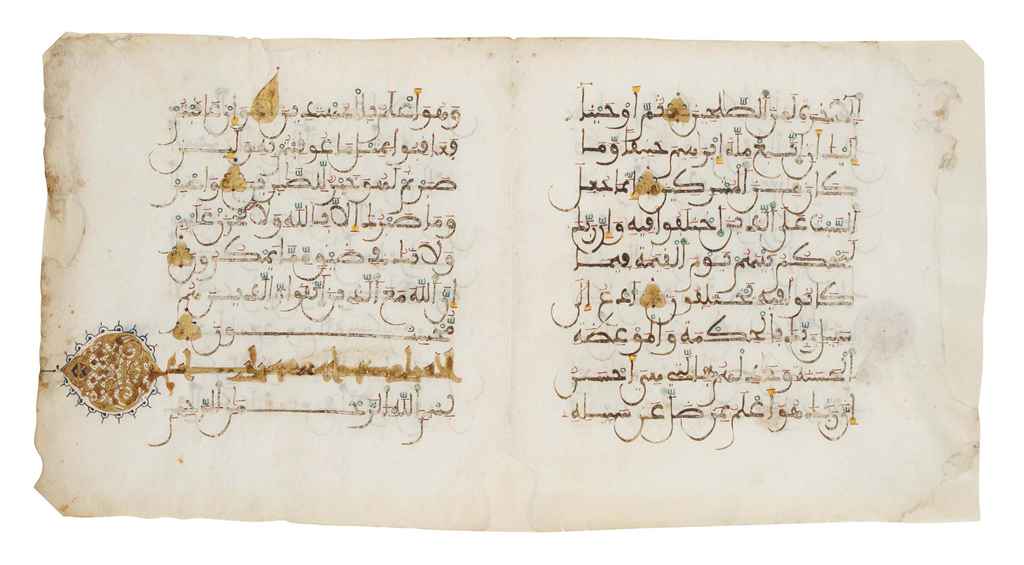 الاخرة لمن الصلحين ثم اوحينا
اليك ان اتبع ملة ابرهيم حنيفا وما
كان من المشركين انما جعل
السبت على الذين اختلفوا فيه وان ربك
ليحكم بينهم يوم القيمة فيما
كانوا فيه يختلفون ادع الى
سبيل ربك بالحكمة والموعظة
الحسنة وجدلهم بالتي هي احسن
ان ربك هو اعلم بمن ضل عن سبيله
وهو اعلم بالمهتدين وان عاقبتم
فعاقبوا بمثل ما عوقبتم به ولئن
صبرتم لهو خير للصبرين واصبر
وما صبرك الا بالله ولا تحزن عليهم
ولا تك في ضيق مما يمكرون
ان الله مع الذين اتقوا والذين هم
محسنون
بسم الله الرحمن الرحيم